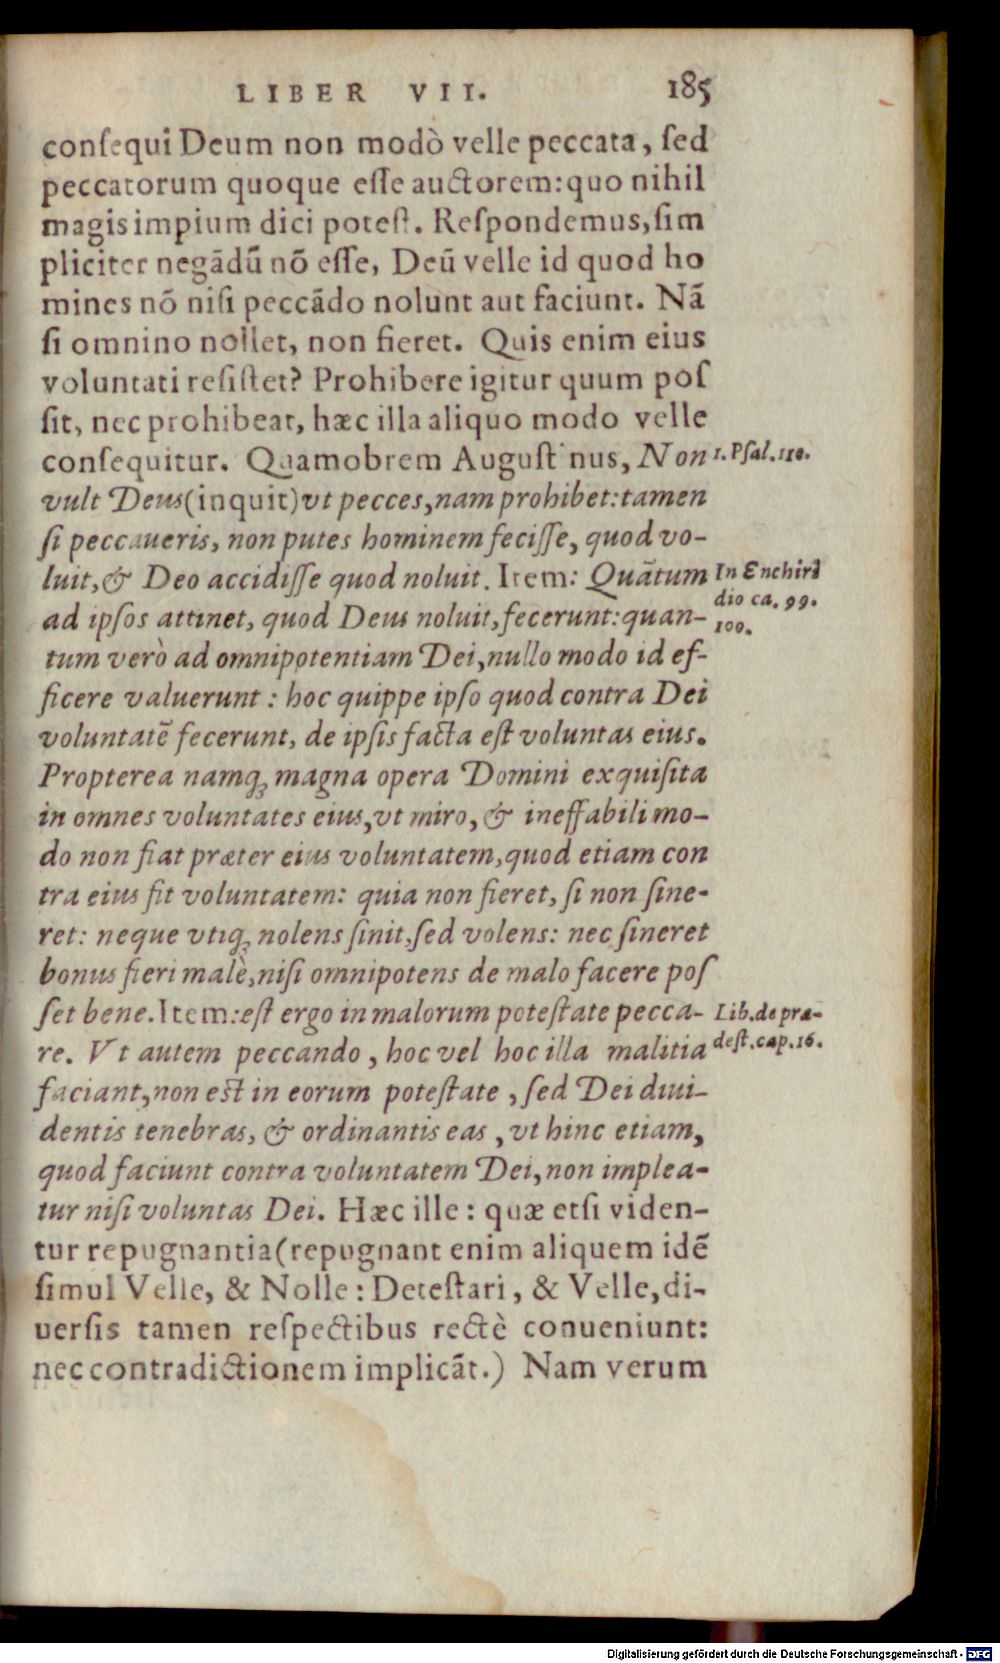 LIBER VII. 185
conſequi Deum non modò velle peccata, ſed
peccatorum quoque eſſe auctorem: quo nihil
magis impium dici poteſt. Reſpondemus, ſim
pliciter negãdũ nõ eſſe, Deũ velle id quod ho
mines nõ niſi peccãdo nolunt aut faciunt. Nã
ſi omnino nollet, non fieret. Quis enim eius
voluntati reſiſtet? Prohibere igitur quum poſ
ſit, nec prohibeat, hæc illa aliquo modo velle
conſequitur. Quamobrem Auguſtinus, Non
1. Pſal. 110.
vult Deus (inquit) vt pecces, nam prohibet: tamen
ſi peccaueris, non putes hominem feciſſe, quod vo-
luit, & Deo accidiſſe quod noluit. Item: Quãtum
In Enchiri
ad ipſos attinet, quod Deus noluit, fecerunt: quan-
dio ca. 99.
100.
tum verò ad omnipotentiam Dei, nullo modo id ef-
ficere valuerunt: hoc quippe ipſo quod contra Dei
voluntatẽ fecerunt, de ipſis facta eſt voluntas eius.
Propterea namq; magna opera Domini exquiſita
in omnes voluntates eius, vt miro, & ineffabili mo-
do non fiat præter eius voluntatem, quod etiam con
tra eius fit voluntatem: quia non fieret, ſi non ſine-
ret: neque vtiq; nolens ſinit, ſed volens: nec ſineret
bonus fieri malè, niſi omnipotens de malo facere poſ
ſet bene. Item: eſt ergo in malorum poteſtate pecca-
Lib. de præ-
re. Vt autem peccando, hoc vel hoc illa malitia
deſt. cap. 16.
faciant, non eſt in eorum poteſtate, ſed Dei diui-
dentis tenebras, & ordinantis eas, vt hinc etiam,
quod faciunt contra voluntatem Dei, non implea-
tur niſi voluntas Dei. Hæc ille: quæ etſi viden-
tur repugnantia (repugnant enim aliquem idẽ
ſimul Velle, & Nolle: Deteſtari, & Velle, di-
uerſis tamen reſpectibus rectè conueniunt:
nec contradictionem implicãt.) Nam verum
Digitalisierung gefördert durch die Deutsche Forschungsgemeinschaft - DFG